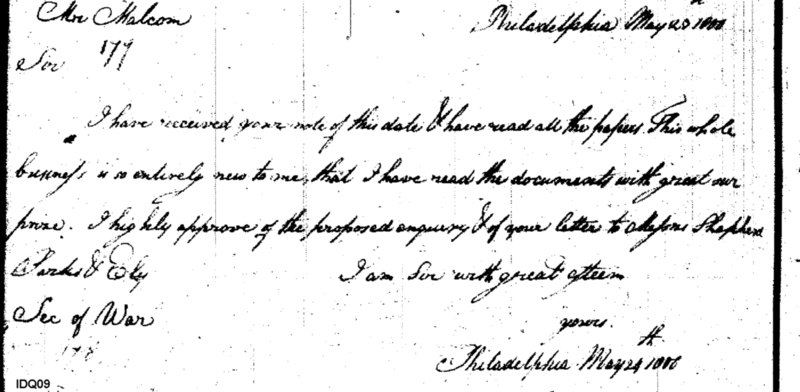 Mr Malcom Philadelphia May 23 1800
177
Sir
I have received your note of this date & have read all the papers. This whole
business is so entirely new to me, that I have read the documents with great sur
prise. I highly approve of the proposed enquiry & of your letter to Messrs Shepherd
Parks & Ely I am Sir with great esteem
Sec of War yours.
178 Philadelphia May 24th 1800
IDQ09